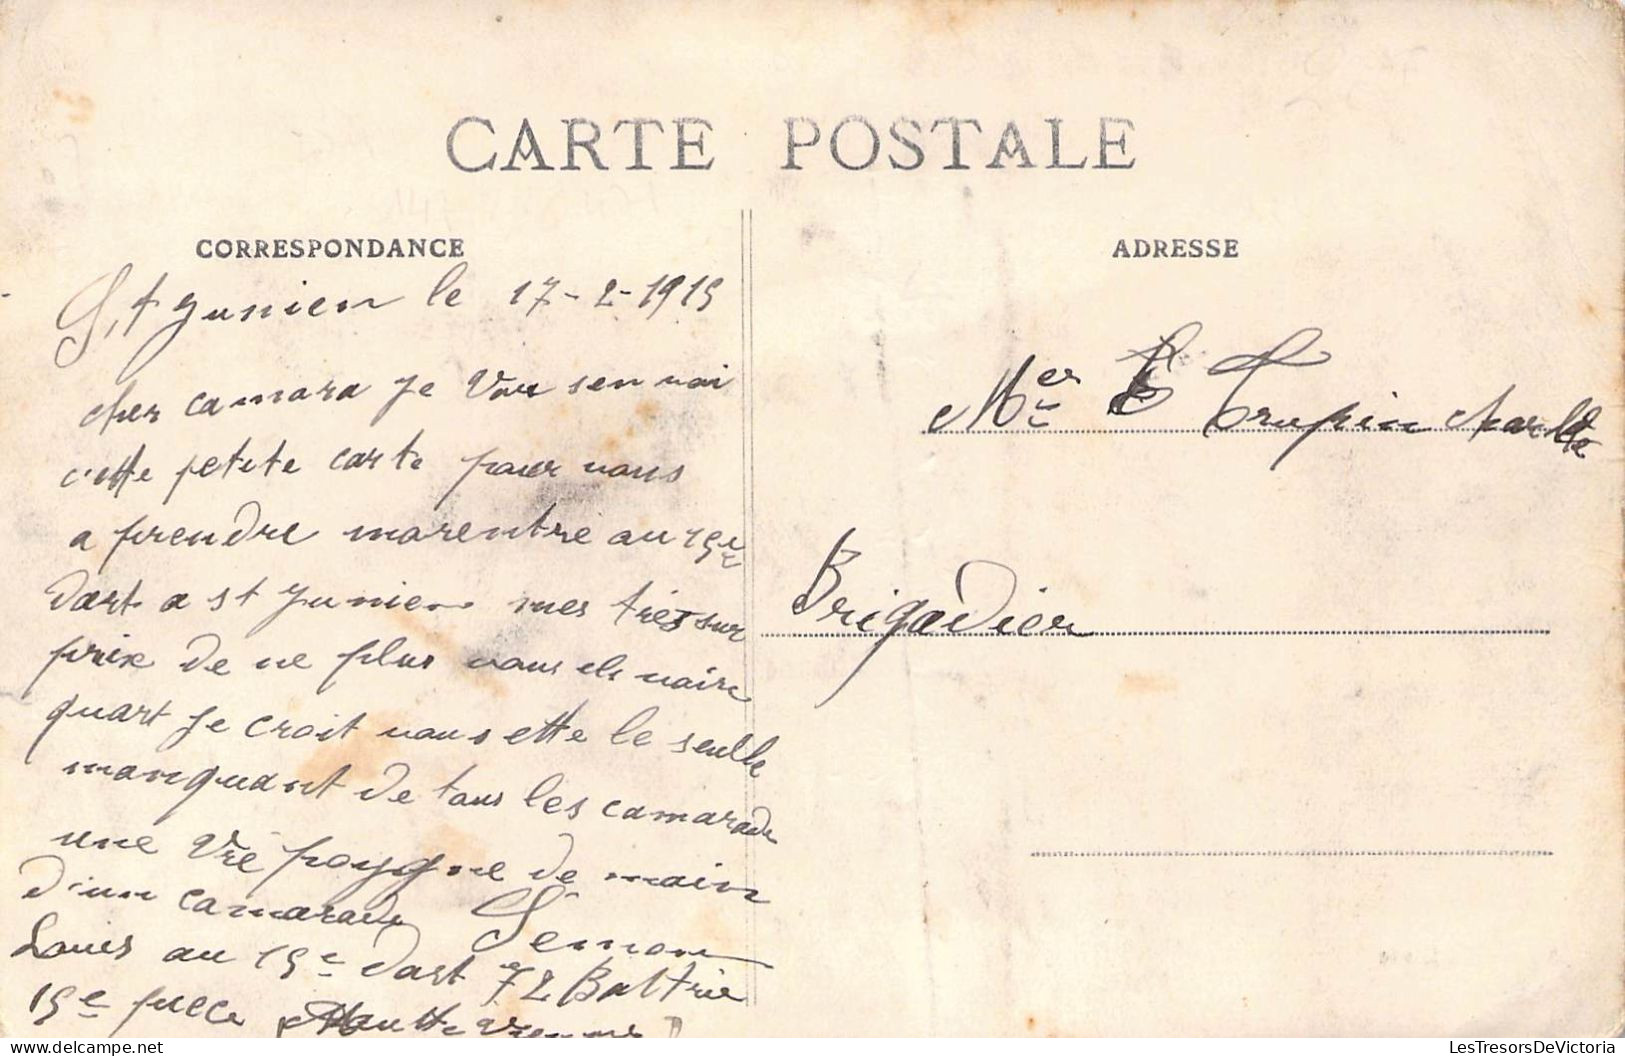 CARTE POSTALE
CORRESPONDANCE
St Junien le 17-2-1915
cher camara je vou sen voi
cette petite carte pour vous
a prendre marentre au 15e
dart a st Junien mes tres sur
prix de ne plus vous
quart je croit vous ette le seulle
manquant de tous les camarade
une poygne de main
d'un camarade Semon
Louis au 15e dart 72 Battrie
15e piece Hautte Vienne
ADRESSE
Mer Trupin Charlle
Brigadier
LesTresorsDeVictoria